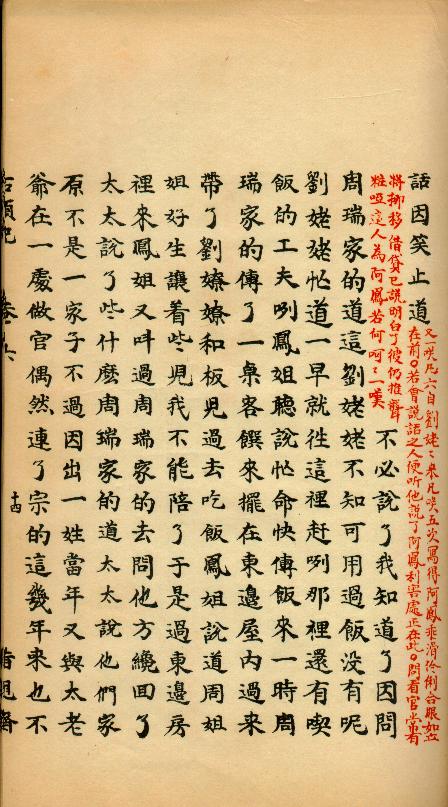 話因笑止道
又一咲凡六自劉姥〻來凡咲五次寫得阿鳳乖滑伶俐合眼如立
在前〇若會說話之人便听他說了阿鳳利害處正在此〇問看官常有
將挪移借貸已說明白了彼仍推聾
粧啞這人為阿鳳若何呵〻一嘆
不必說了我知道了因問
周瑞家的道這劉姥姥不知可用過飯没有呢
劉姥姥忙道一早就徃這裡赶咧那裡還有喫
飯的工夫咧鳳姐聽說忙命快傳飯來一時周
瑞家的傳了一桌客饌來擺在東邊屋内過來
帶了劉嫽嫽和板児過去吃飯鳳姐說道周姐
姐好生讓着些児我不能陪了于是過東邊房
裡來鳳姐又呌過周瑞家的去問他方纔囬了
太太說了些什麽周瑞家的道太太說他們家
原不是一家子不過因出一姓當年又與太老
爺在一處做官偶然連了宗的這幾年來也不
十四